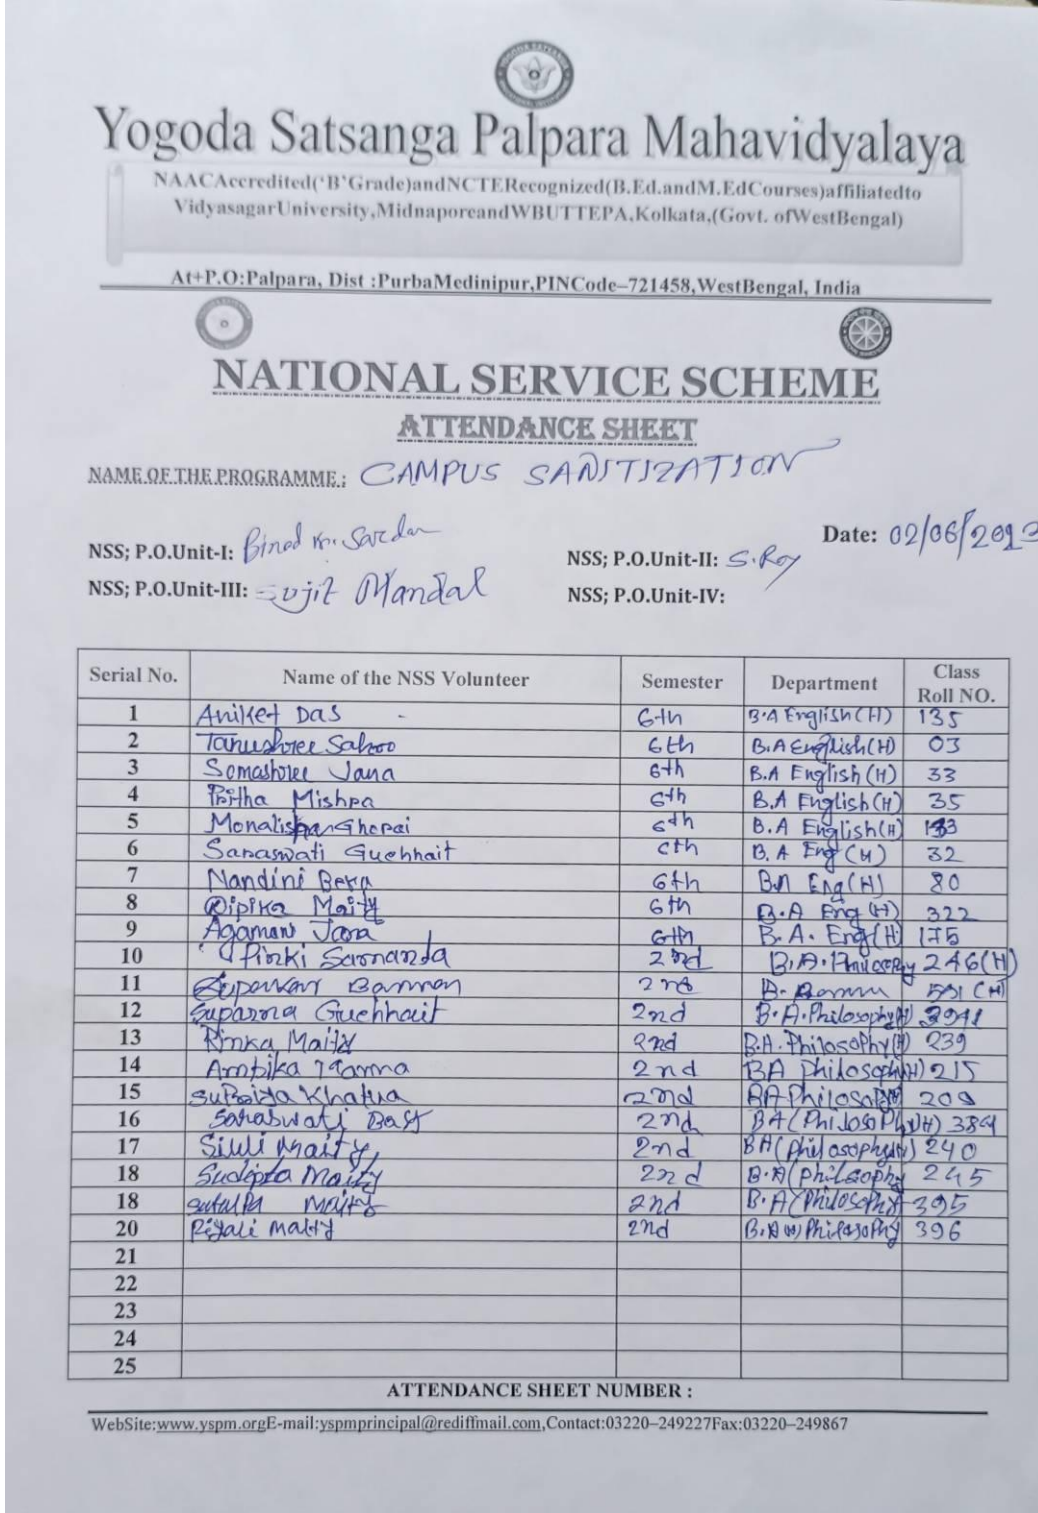 Yogoda Satsanga Palpara Mahavidyalaya
NAACAccredited('B'Grade)andNCTERecognized(B.Ed.andM.EdCourses)affiliatedto
VidyasagarUniversity,MidnaporeandWBUTTEPA,Kolkata,(Govt. ofWestBengal)
At+P.O:Palpara, Dist :PurbaMedinipur,PINCode–721458,WestBengal, India
NATIONAL SERVICE SCHEME
ATTENDANCE SHEET
NAME OF THE PROGRAMME : CAMPUS SANITIZATION
Date: 02/06/2023
NSS; P.O.Unit-I: Binod Kr. Sardar NSS; P.O.Unit-II: S. Roy
NSS; P.O.Unit-III: Sujit Mandal NSS; P.O.Unit-IV:
Serial No. Name of the NSS Volunteer Semester Department Class Roll NO.
1 Aniket Das 6th B.A English (H) 135
2 Tanushree Sahoo 6th B.A English (H) 03
3 Somashree Jana 6th B.A English (H) 33
4 Pritha Mishra 6th B.A English (H) 35
5 Ghorai 6th B.A English (H)
6 Saraswati Guchhait 6th B. A Eng (H) 32
7 Nandini Bera 6th B.A Eng (H) 80
8 Dipika Maity 6th B.A Eng (H) 322
9 Agamani Jana 6th B.A. Eng (H) 175
10 Pinki Samanda 2nd B.A. Philosophy 246 (H)
11 Barman 2nd (H)
12 Suparna Guchhait 2nd B.A. Philosophy (H)
13 Rinka Maity 2nd B.A. Philosophy (H) 239
14 Ambika 2nd BA Philosophy (H) 215
15 Khatua 2nd BA Philosophy 209
16 Saraswati 2nd BA (Philosophy (H) 384
17 Siuli Maity 2nd BA (Philosophy (H) 240
18 Sudipta Maity 2nd B.A (Philosophy 245
18 Sutalpa Maity 2nd B.A (Philosophy 395
20 Piyali Maity 2nd B.A (H) Philosophy 396
21
22
23
24
25
ATTENDANCE SHEET NUMBER :
WebSite:www.yspm.orgE-mail:yspmprincipal@rediffmail.com,Contact:03220–249227Fax:03220–249867